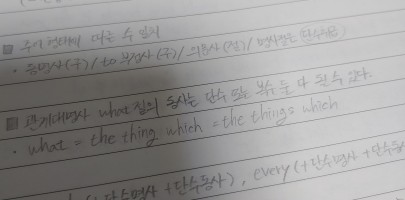 ■ 주어 형태에 따른 수 일치
· 동명사(구) / to 부정사(구) / 의문사(절) / 명사절은 (단수취급)
■ 관계대명사 what 절의 동사는 단수 또는 복수 둘 다 될 수 있다.
· what = the thing which = the things which
(+단수명사 +단수동사), every (+단수명사 +단수동